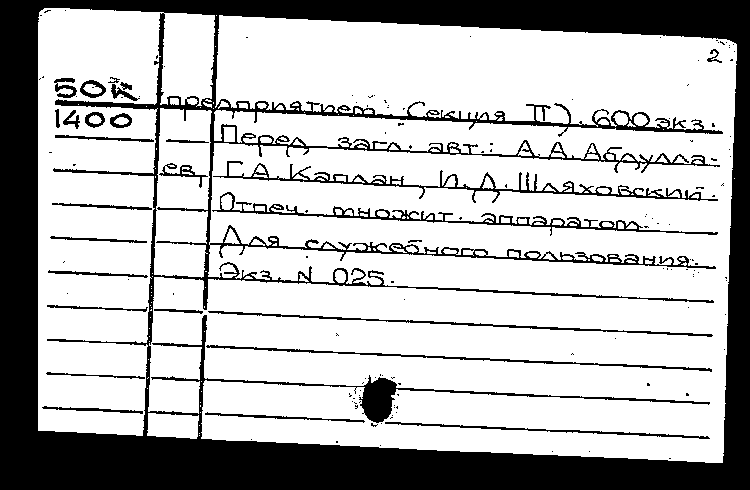 2
50К
1400
предприятием. Секция II). 600 экз.
Перед загл. авт.: А.А. Абдулла-
ев, Г.А. Каплан, И.Д. Шляховский.
Отпеч. множит. аппаратом.
Для служебного пользования.
Экз. N 025.